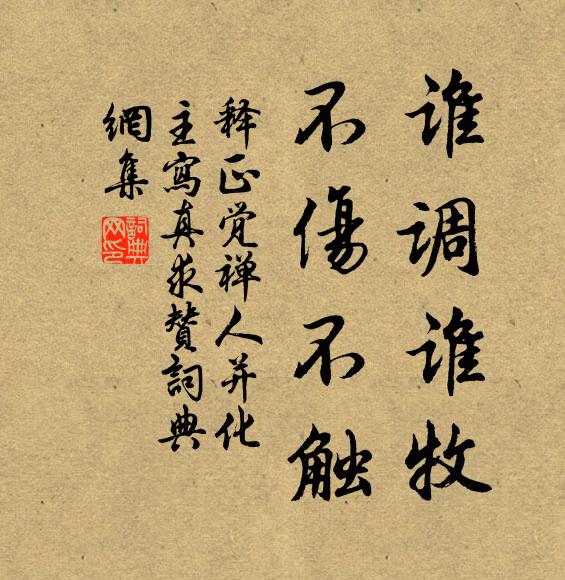 谁调谁牧
不傷不触
释正覚禅人并化
主寫真求贊詞典
網集
詞典网印